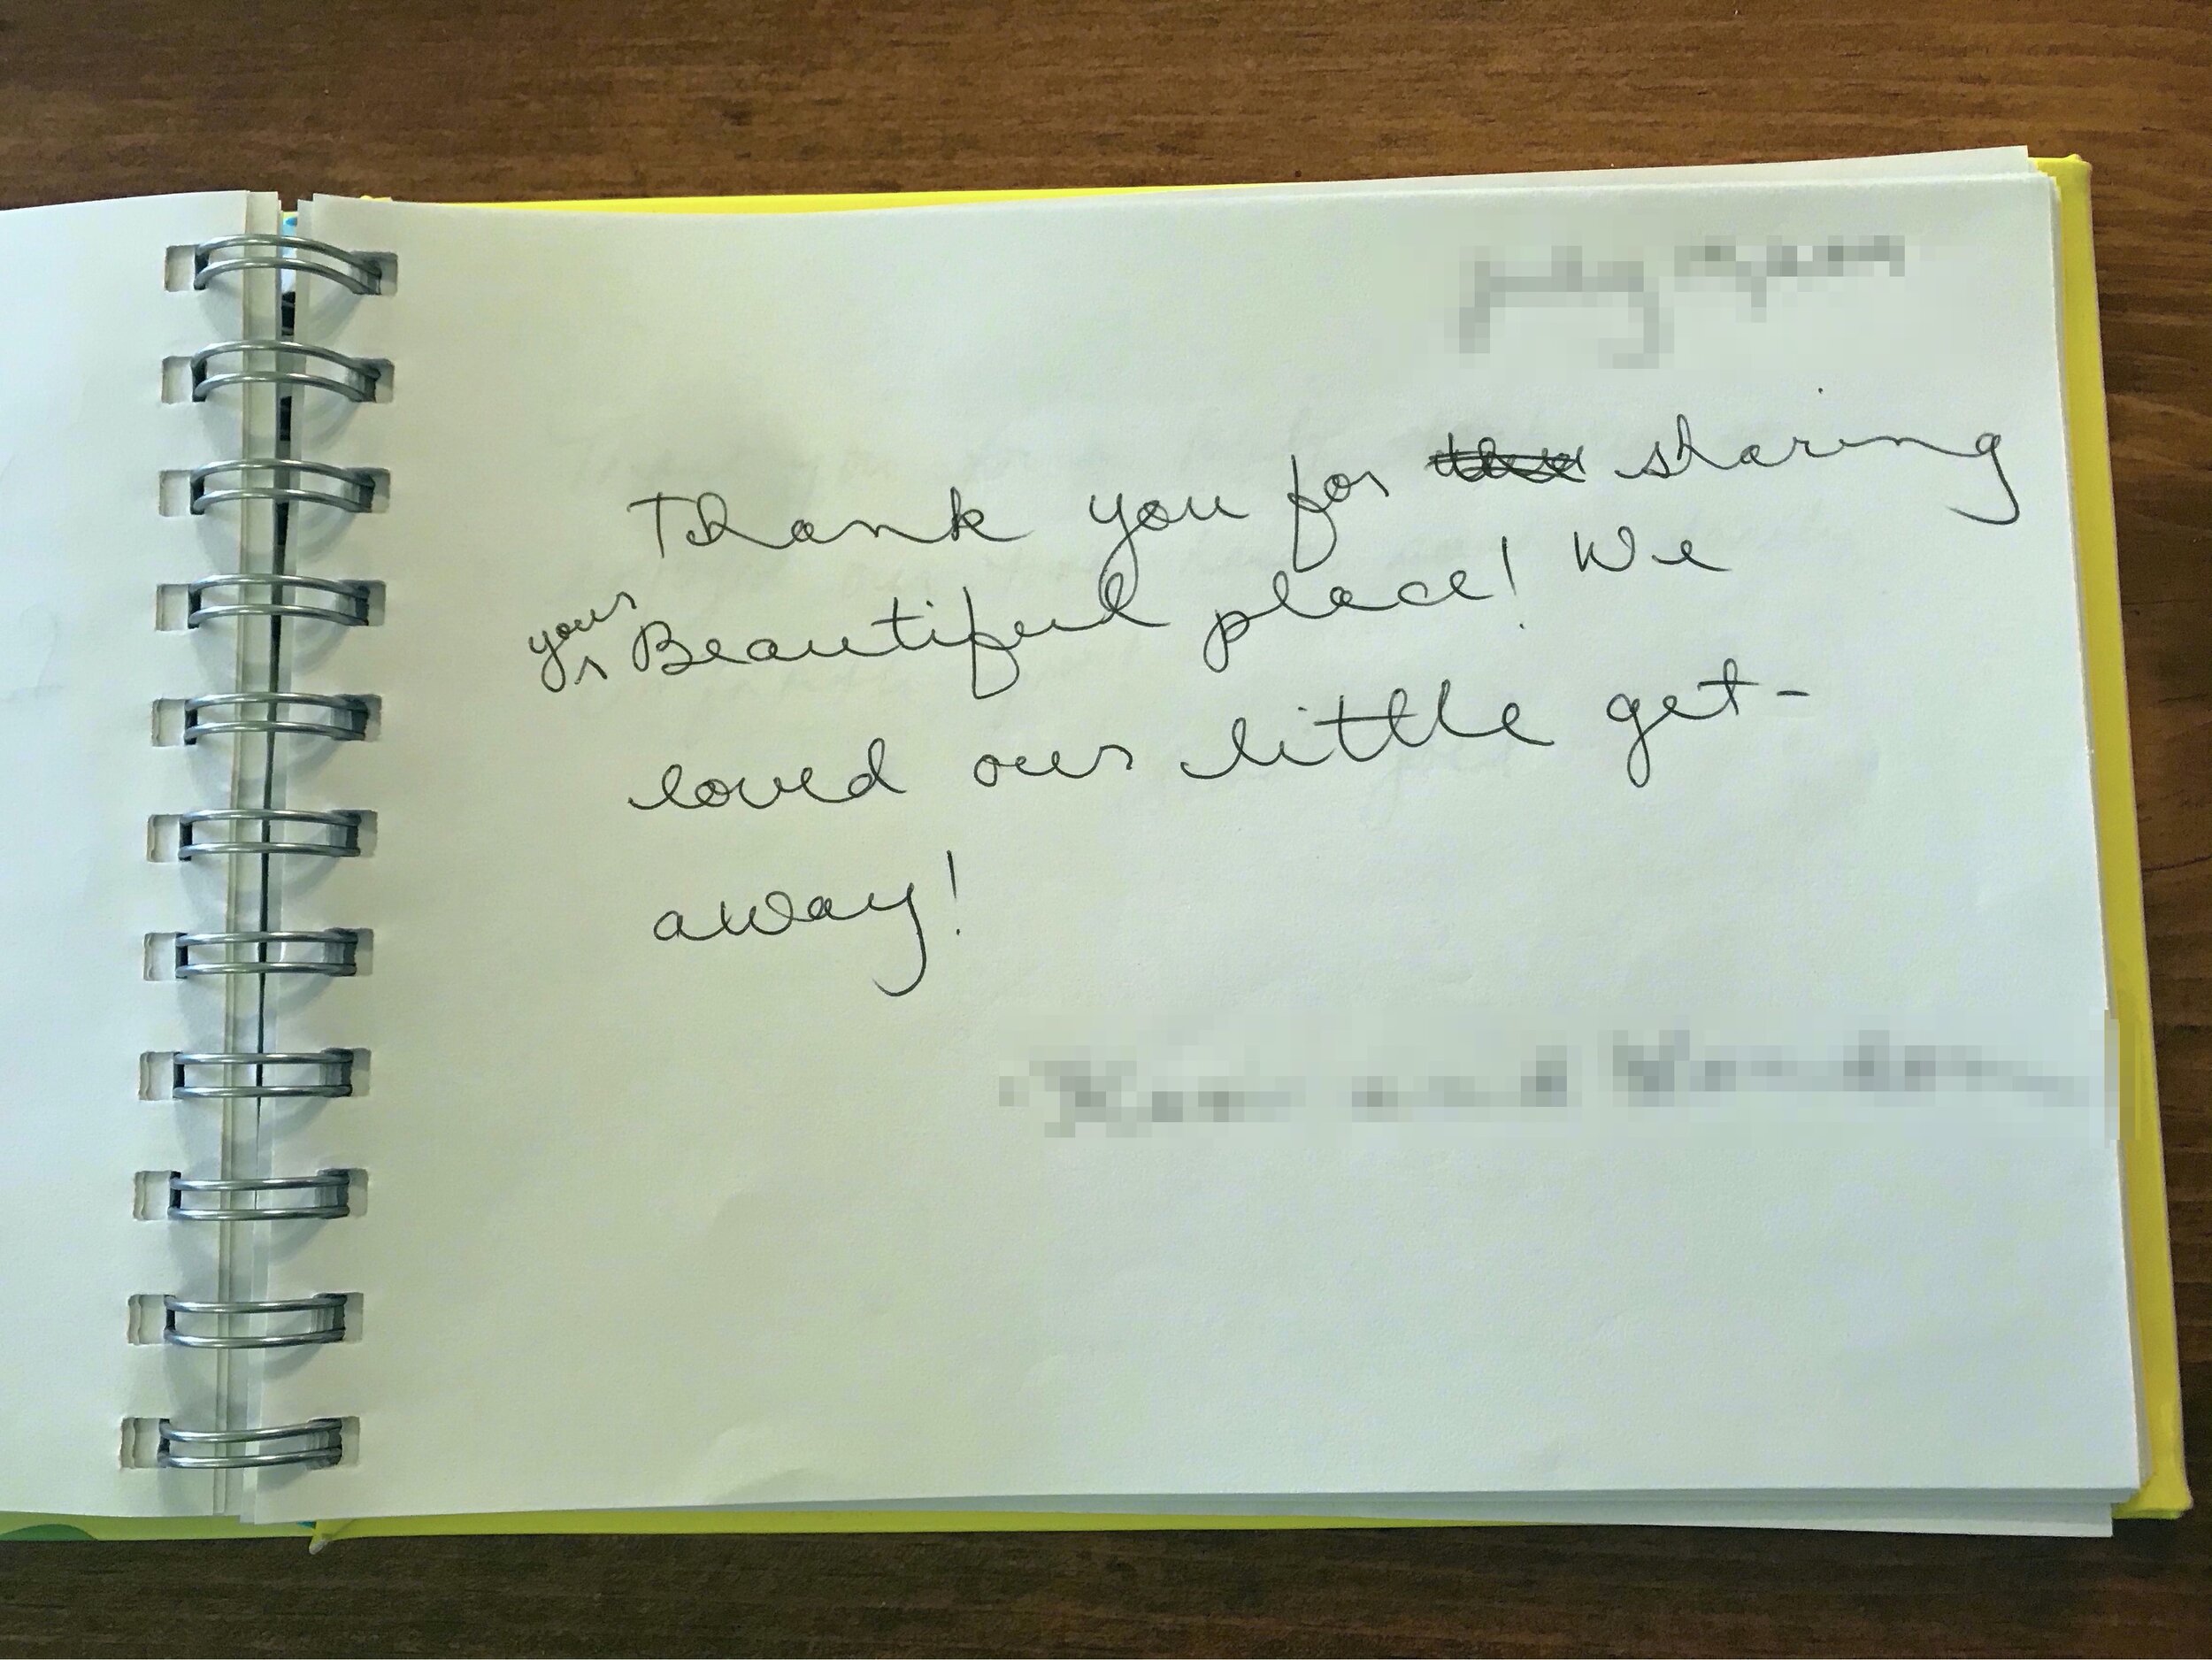 Thank you for sharing
your Beautiful place! We
loved our little get-
away!